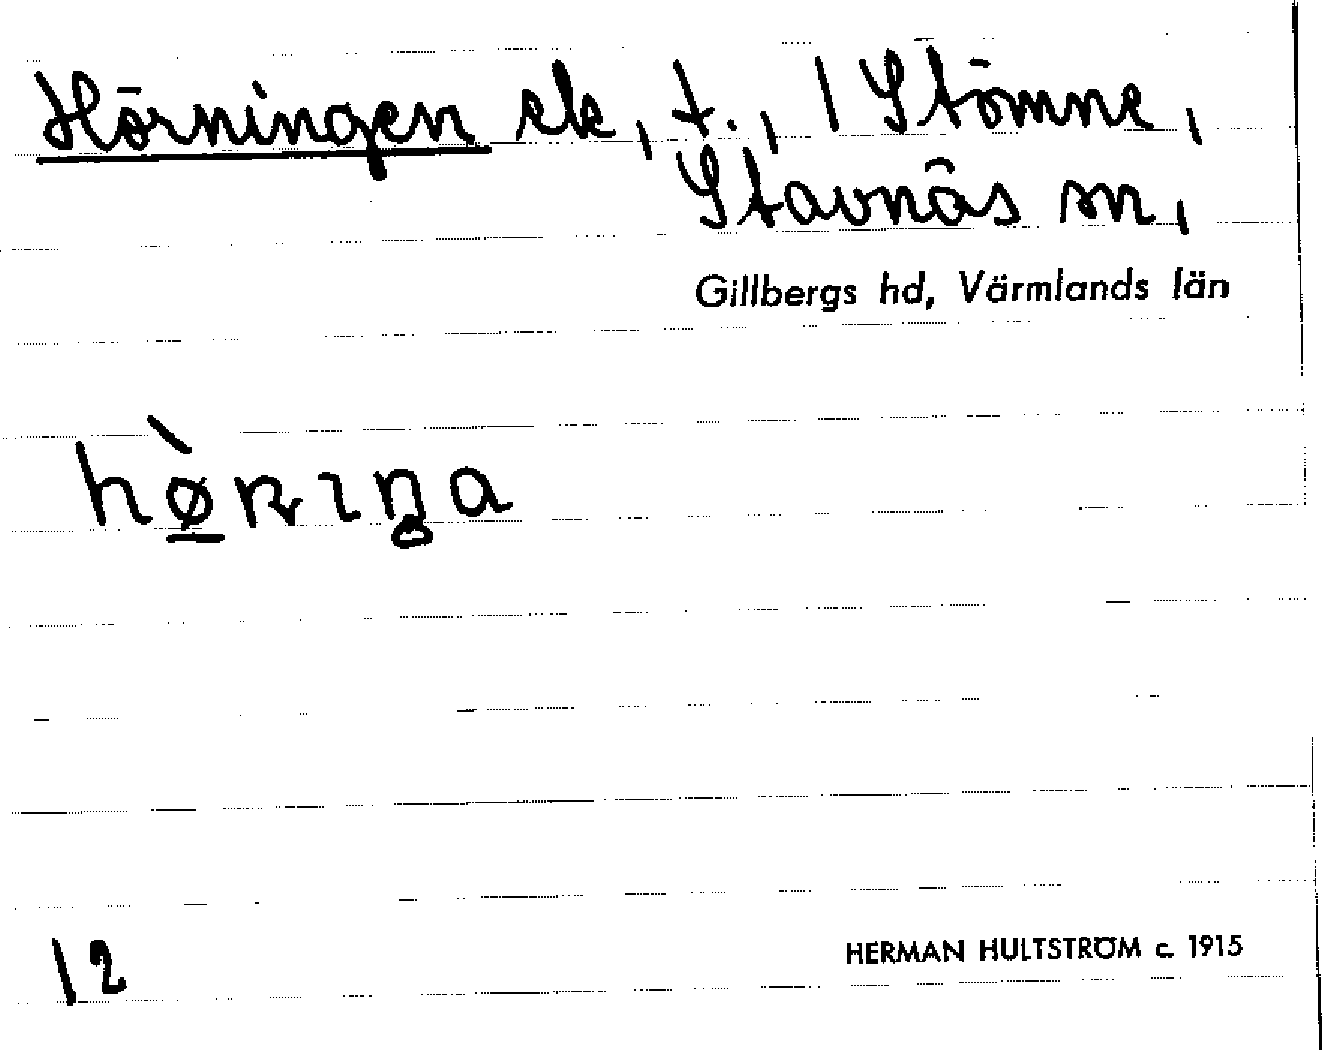 Hörningen elk, t., 1 Stömne,
Stavnäs sn,
Gillbergs hd, Värmlands län
12
HERMAN HULTSTRÖM c. 1915